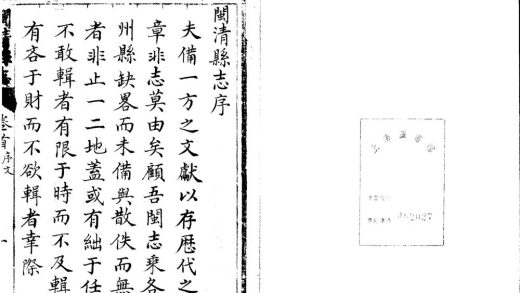 閩清縣志序
夫備一方之文獻以存歷代之
章非志莫由矣顧吾閩志乘各
州縣缺畧而未備與散佚而無
者非止一二地蓋或有絀于任
不敢輯者有限于時而不及輯
有吝于財而不欲輯者幸際
卷首
序文
一
2027